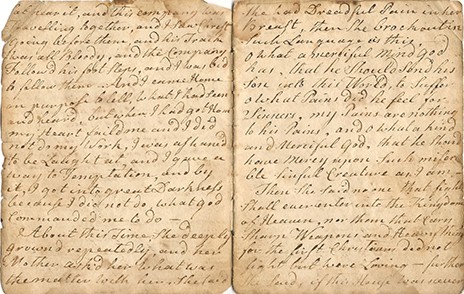 of hear it, and this company
travelling together, and I saw Christ
Going before them, and his Track
was all Bloody, and the Company
Follow'd his foot steps, and I was bid
to follow them And I came Home
on purpose to tell what I had seen
and heard, but when I had got Home
my Heart faild me and I did
not do my Work, I was afraid
to be Laught at, and I gave
way to Temptation, and by
it, I got into great Darkness
because I did not do what god
commanded me to do —
About this Time She deeply
groan'd repeatedly, and her
Mother ask'd her what was
the matter with her, She said
She had Dreadful Pain in her
Breast, then She broke out in
Such Language as this
O what a merciful kind God
has, that he Should Send his
Son into this World, to Suffer
O what Pains did he feel for
Sinners, my Pains are nothing
to his Pains, and O what a kind
and Merciful God, that he Should
have Mercy upon Such miser
ble sinful Creature as I am —
Then She Said no one that fights
Shall ever enter into the Kingdom
of Heaven, nor them that Carry
Warm Weapons and
for the first Christians did not
fight but were Loving — further
She Said, if this House was